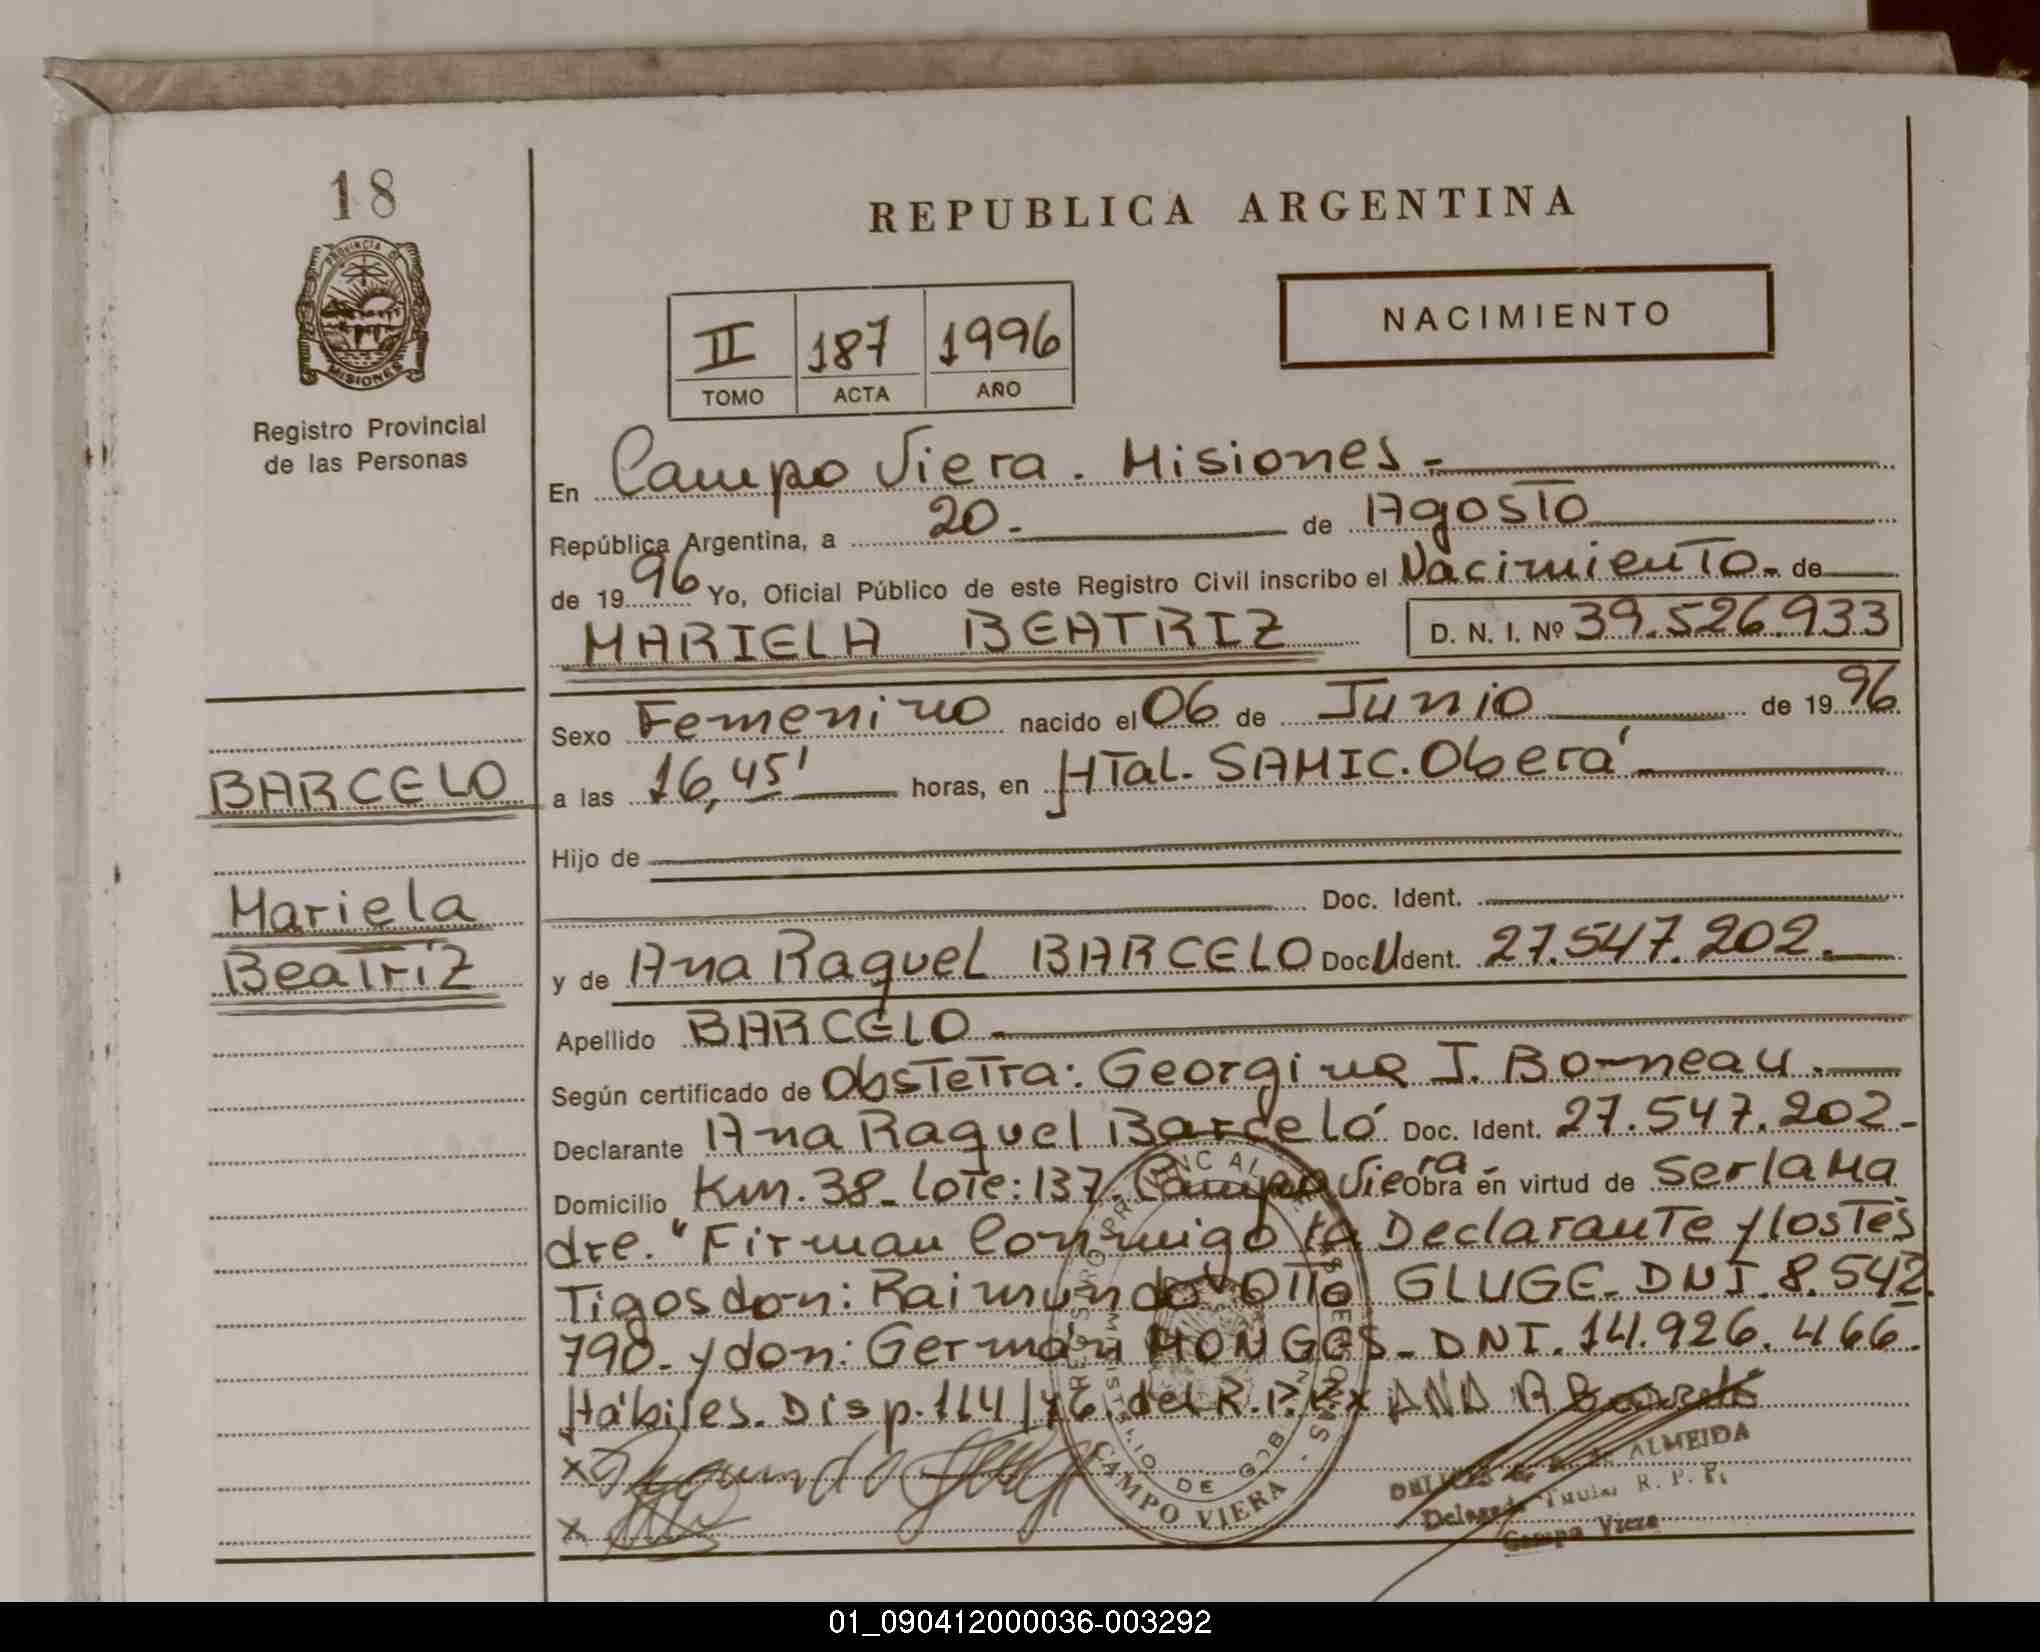 18
PROVINCIA DE
MISIONES
Registro Provincial
de las Personas
REPUBLICA ARGENTINA
II 187 1996
TOMO ACTA AÑO
NACIMIENTO
En Campo Viera. Misiones.-
República Argentina, a 20.- de Agosto
de 1996 Yo, Oficial Público de este Registro Civil inscribo el Nacimiento.- de
MARIELA BEATRIZ D. N. I. Nº 39.526.933
Sexo Femenino nacido el 06 de Junio de 1996
a las 16,45' horas, en HTal. SAMIC. Oberá.-
Hijo de
Doc. Ident.
y de Ana Raquel BARCELO Doc. Ident. 27.547.202.-
Apellido BARCELO.-
Según certificado de Obstetra: Georgina J. Borneau.-
Declarante Ana Raquel Barceló. Doc. Ident. 27.547.202-
Domicilio Km. 38- Lote: 137. Campo Viera- Obra en virtud de Ser la Ma
dre. "Firman Conmigo la Declarante y los Tes
Tigos don: Raimundo Otto GLUGE- DNI. 8.542.
790- y don: Germán MONGES- DNI. 14.926.466.
Hábiles. Disp. 114/76. del R.P.P. x ANA R Barcelo
x
x
BARCELO
Mariela
Beatriz
CAMPO VIERA
ALMEIDA
Delegada Titular R. P. P.
Campo Viera
01_090412000036-003292